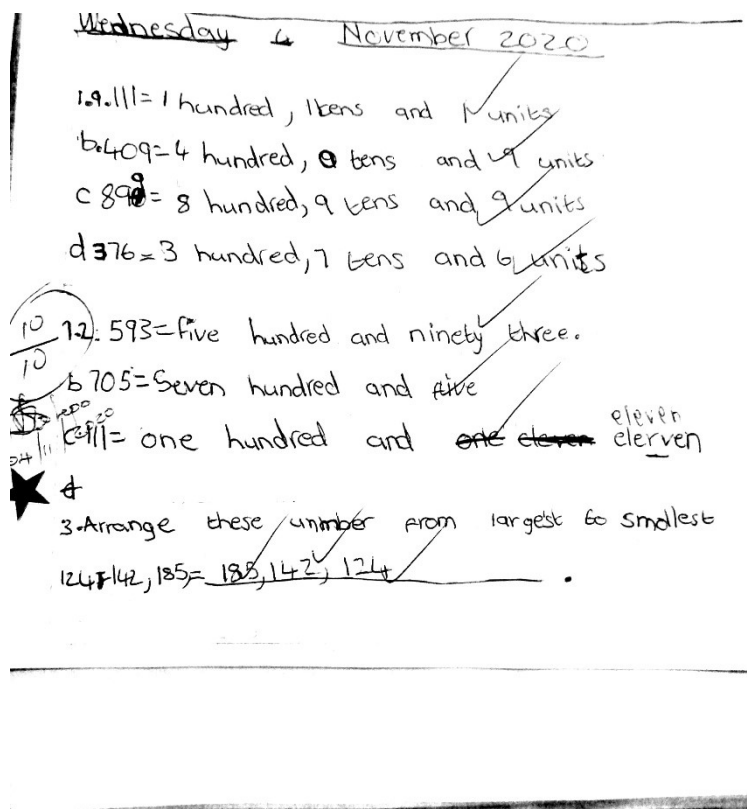 Wednesday 4 November 2020
1.a.111=1 hundred, 1tens and 1 units
b.409=4 hundred, 0 tens and 9 units
c 899= 8 hundred, 9 tens and 9 units
d 376=3 hundred, 7 tens and 6 units
10
10
2. 593=five hundred and ninety three.
b 705=Seven hundred and five
eleven
c 111= one hundred and one eleven elerven
d
3.Arrange these unmber from largest to smallest
124,142,185= 185,142, 124 .